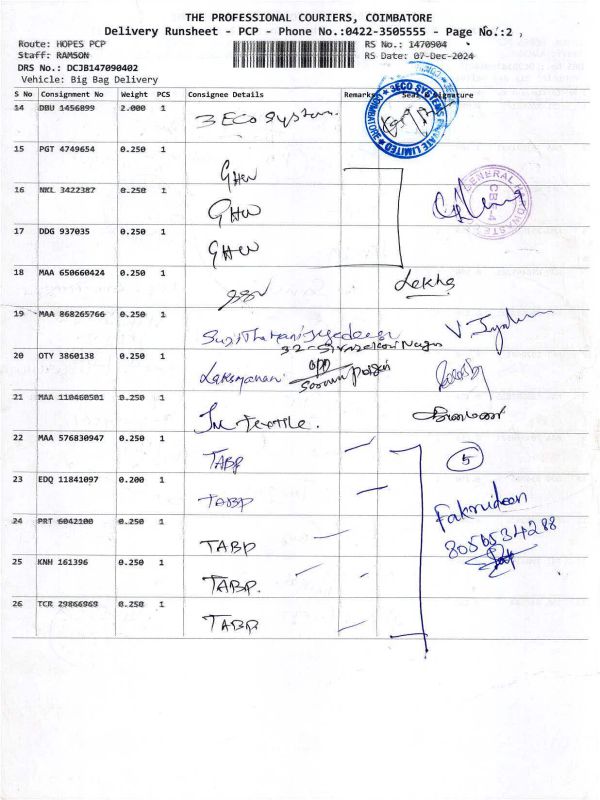 THE PROFESSIONAL COURIERS, COIMBATORE
Delivery Runsheet - PCP - Phone No.:0422-3505555 - Page No.:2
Route: HOPES PCP
RS No.: 1470904
Staff: RAMSON
RS Date: 07-Dec-2024
DRS No.: DCJB147090402
Vehicle: Big Bag Delivery
S No Consignment No Weight PCS Consignee Details Remarks Seal Signature
14 DBU 1456899 2.000 1 3 ECO System.
3ECO SYSTEMS PRIVATE LIMITED * COIMBATORE *
15 PGT 4749654 0.250 1 GHW
16 NKL 3422387 0.250 1 GHW
GENERAL HARDWARE
CBE-4
17 DDG 937035 0.250 1 GHW
18 MAA 650660424 0.250 1 Lekha
19 MAA 868265766 0.250 1
20 OTY 3860138 0.250 1 Laksmanan
opp
21 MAA 110460501 0.250 1 Textile.
22 MAA 576830947 0.250 1 TABP
5
23 EDQ 11841097 0.200 1 TABP
Fakrudeen
24 PRT 6042100 0.250 1 TABP
8056534288
25 KNH 161396 0.250 1 TABP.
26 TCR 29866969 0.250 1 TABP